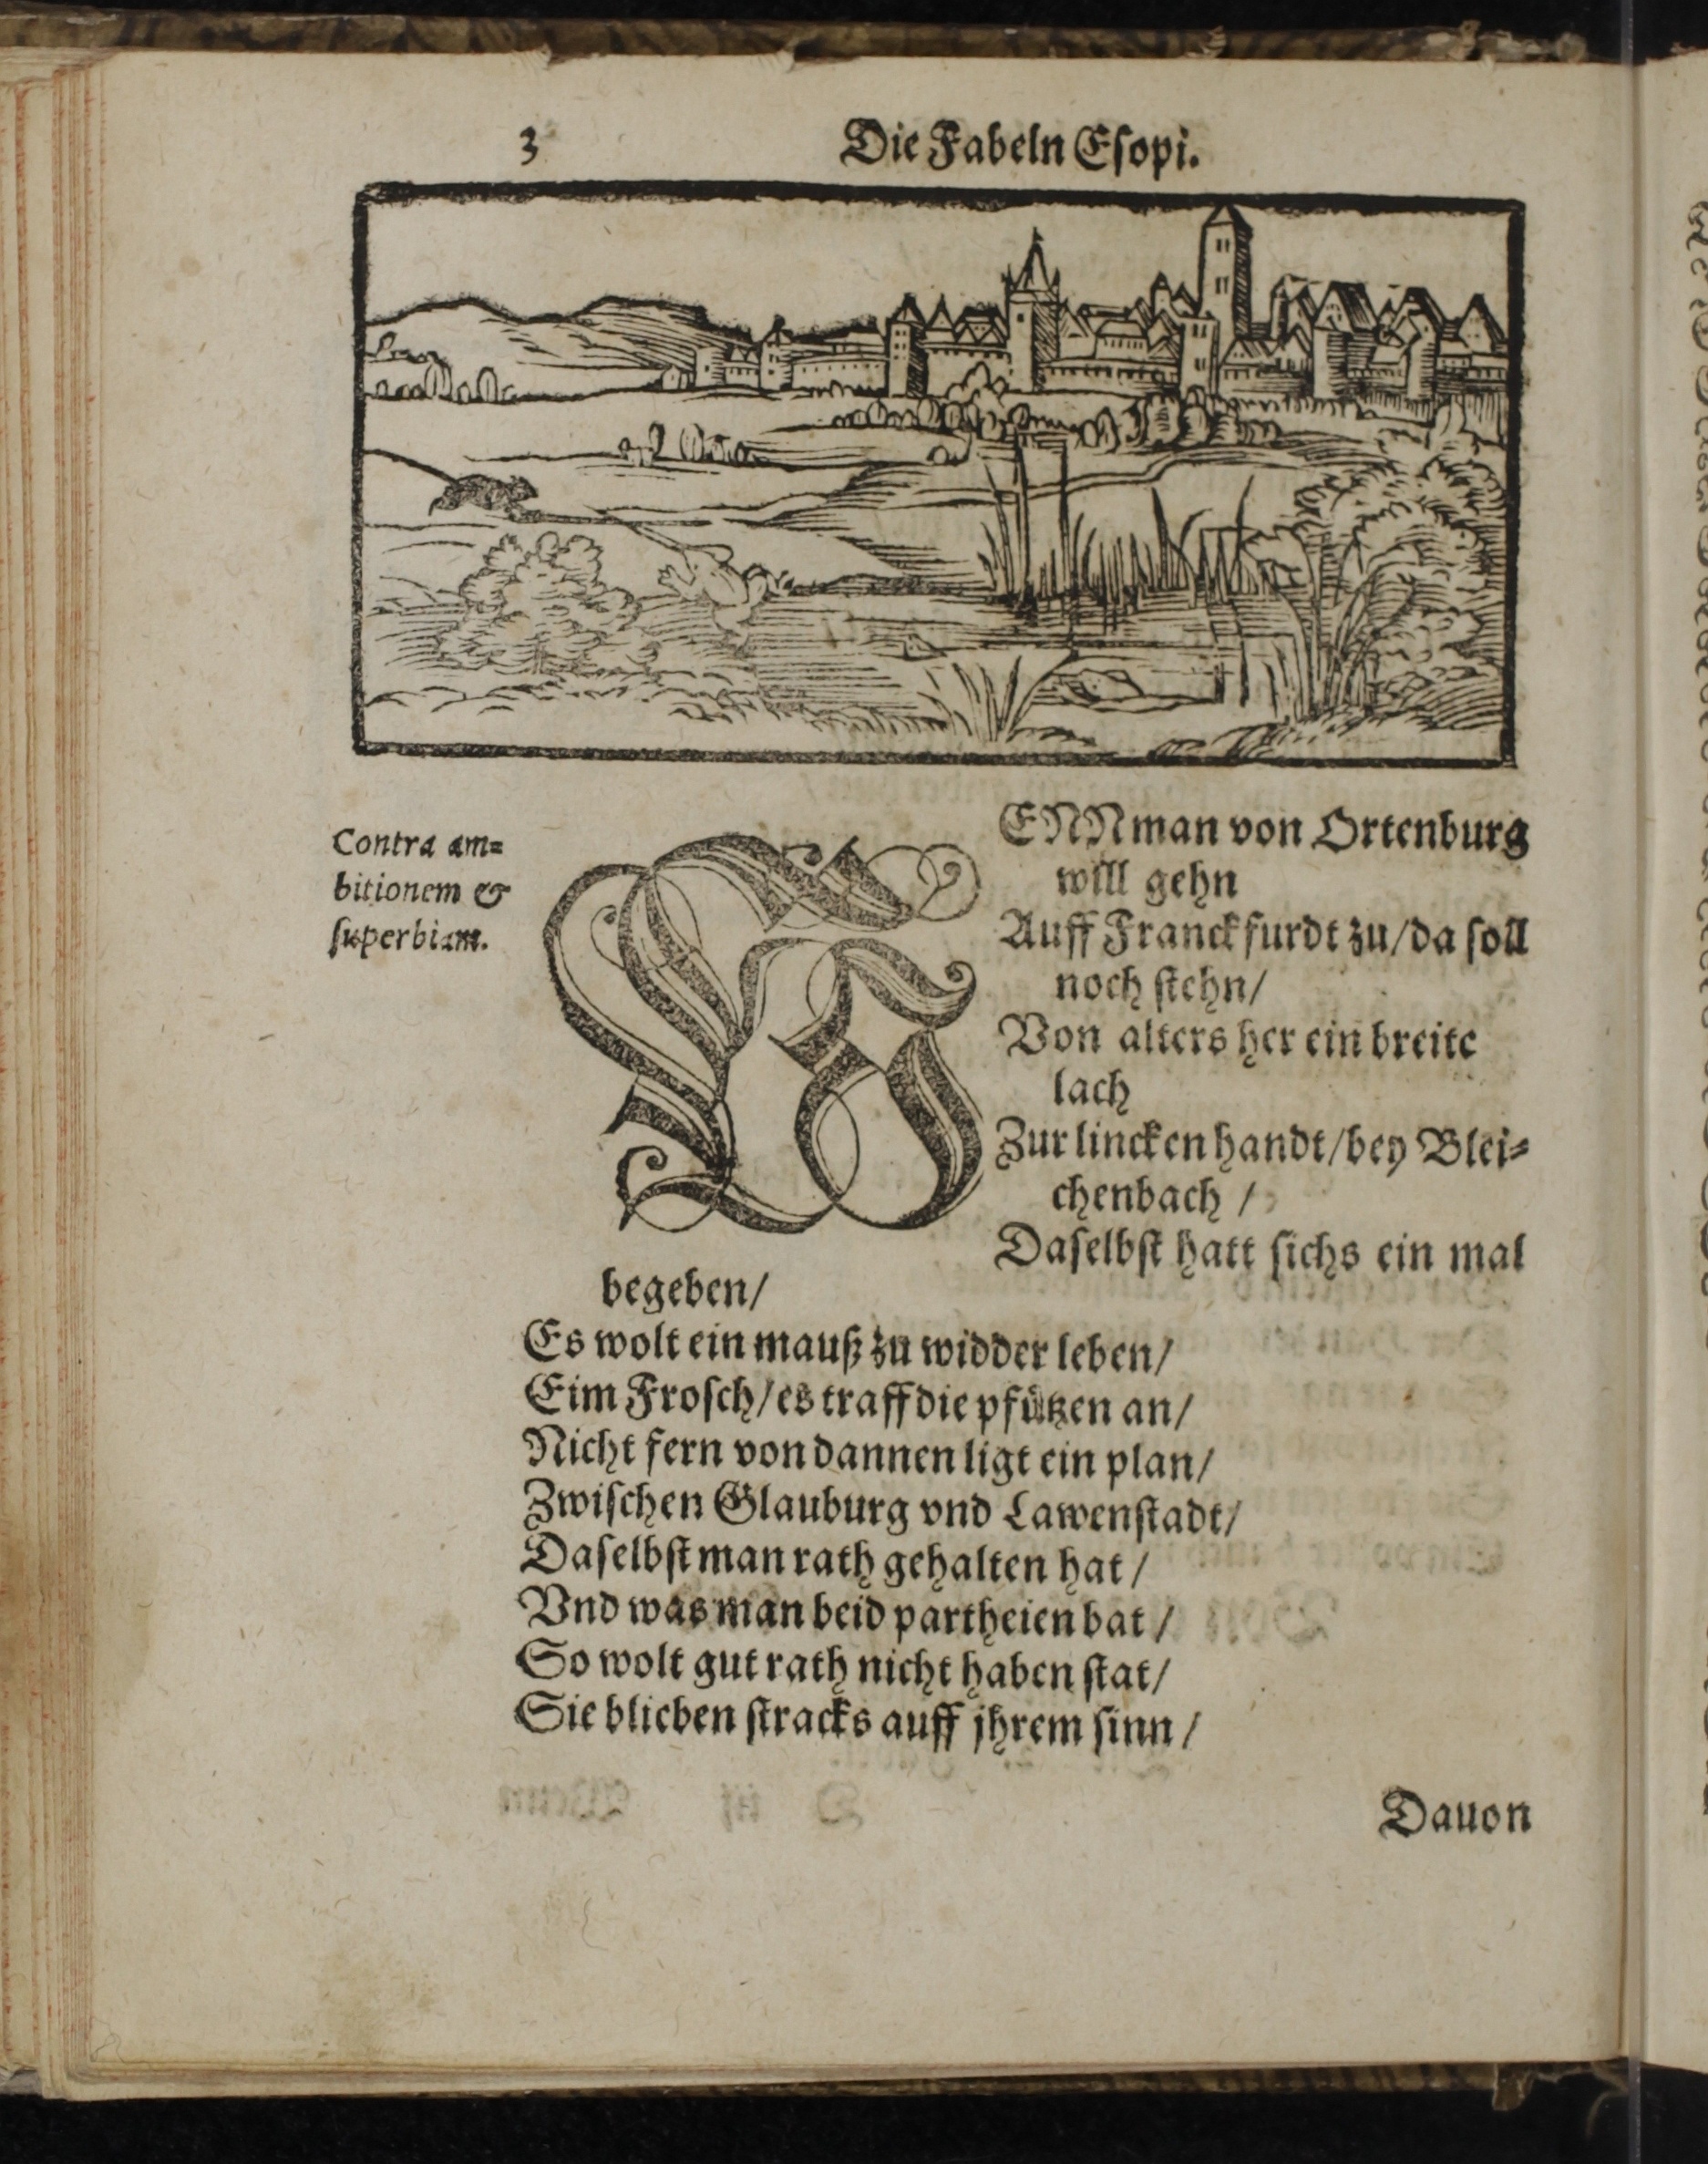 3
Die Fabeln Eſopi.
Contra am=
bitionem &
ſuperbiam.
WENN man von Ortenburg
will gehn
Auff Franckfurdt zu/da ſoll
noch ſtehn/
Von alters her ein breite
lach
Zur lincken handt/bey Blei⸗
chenbach /
Daſelbſt hatt ſichs ein mal
begeben/
Es wolt ein mauß zu widder leben/
Eim Froſch/es traff die pfützen an/
Nicht fern von dannen ligt ein plan/
Zwiſchen Glauburg vnd Lawenſtadt/
Daſelbſt man rath gehalten hat /
Vnd was man beid partheien bat /
So wolt gut rath nicht haben ſtat/
Sie blieben ſtracks auff jhrem ſinn /
Dauon